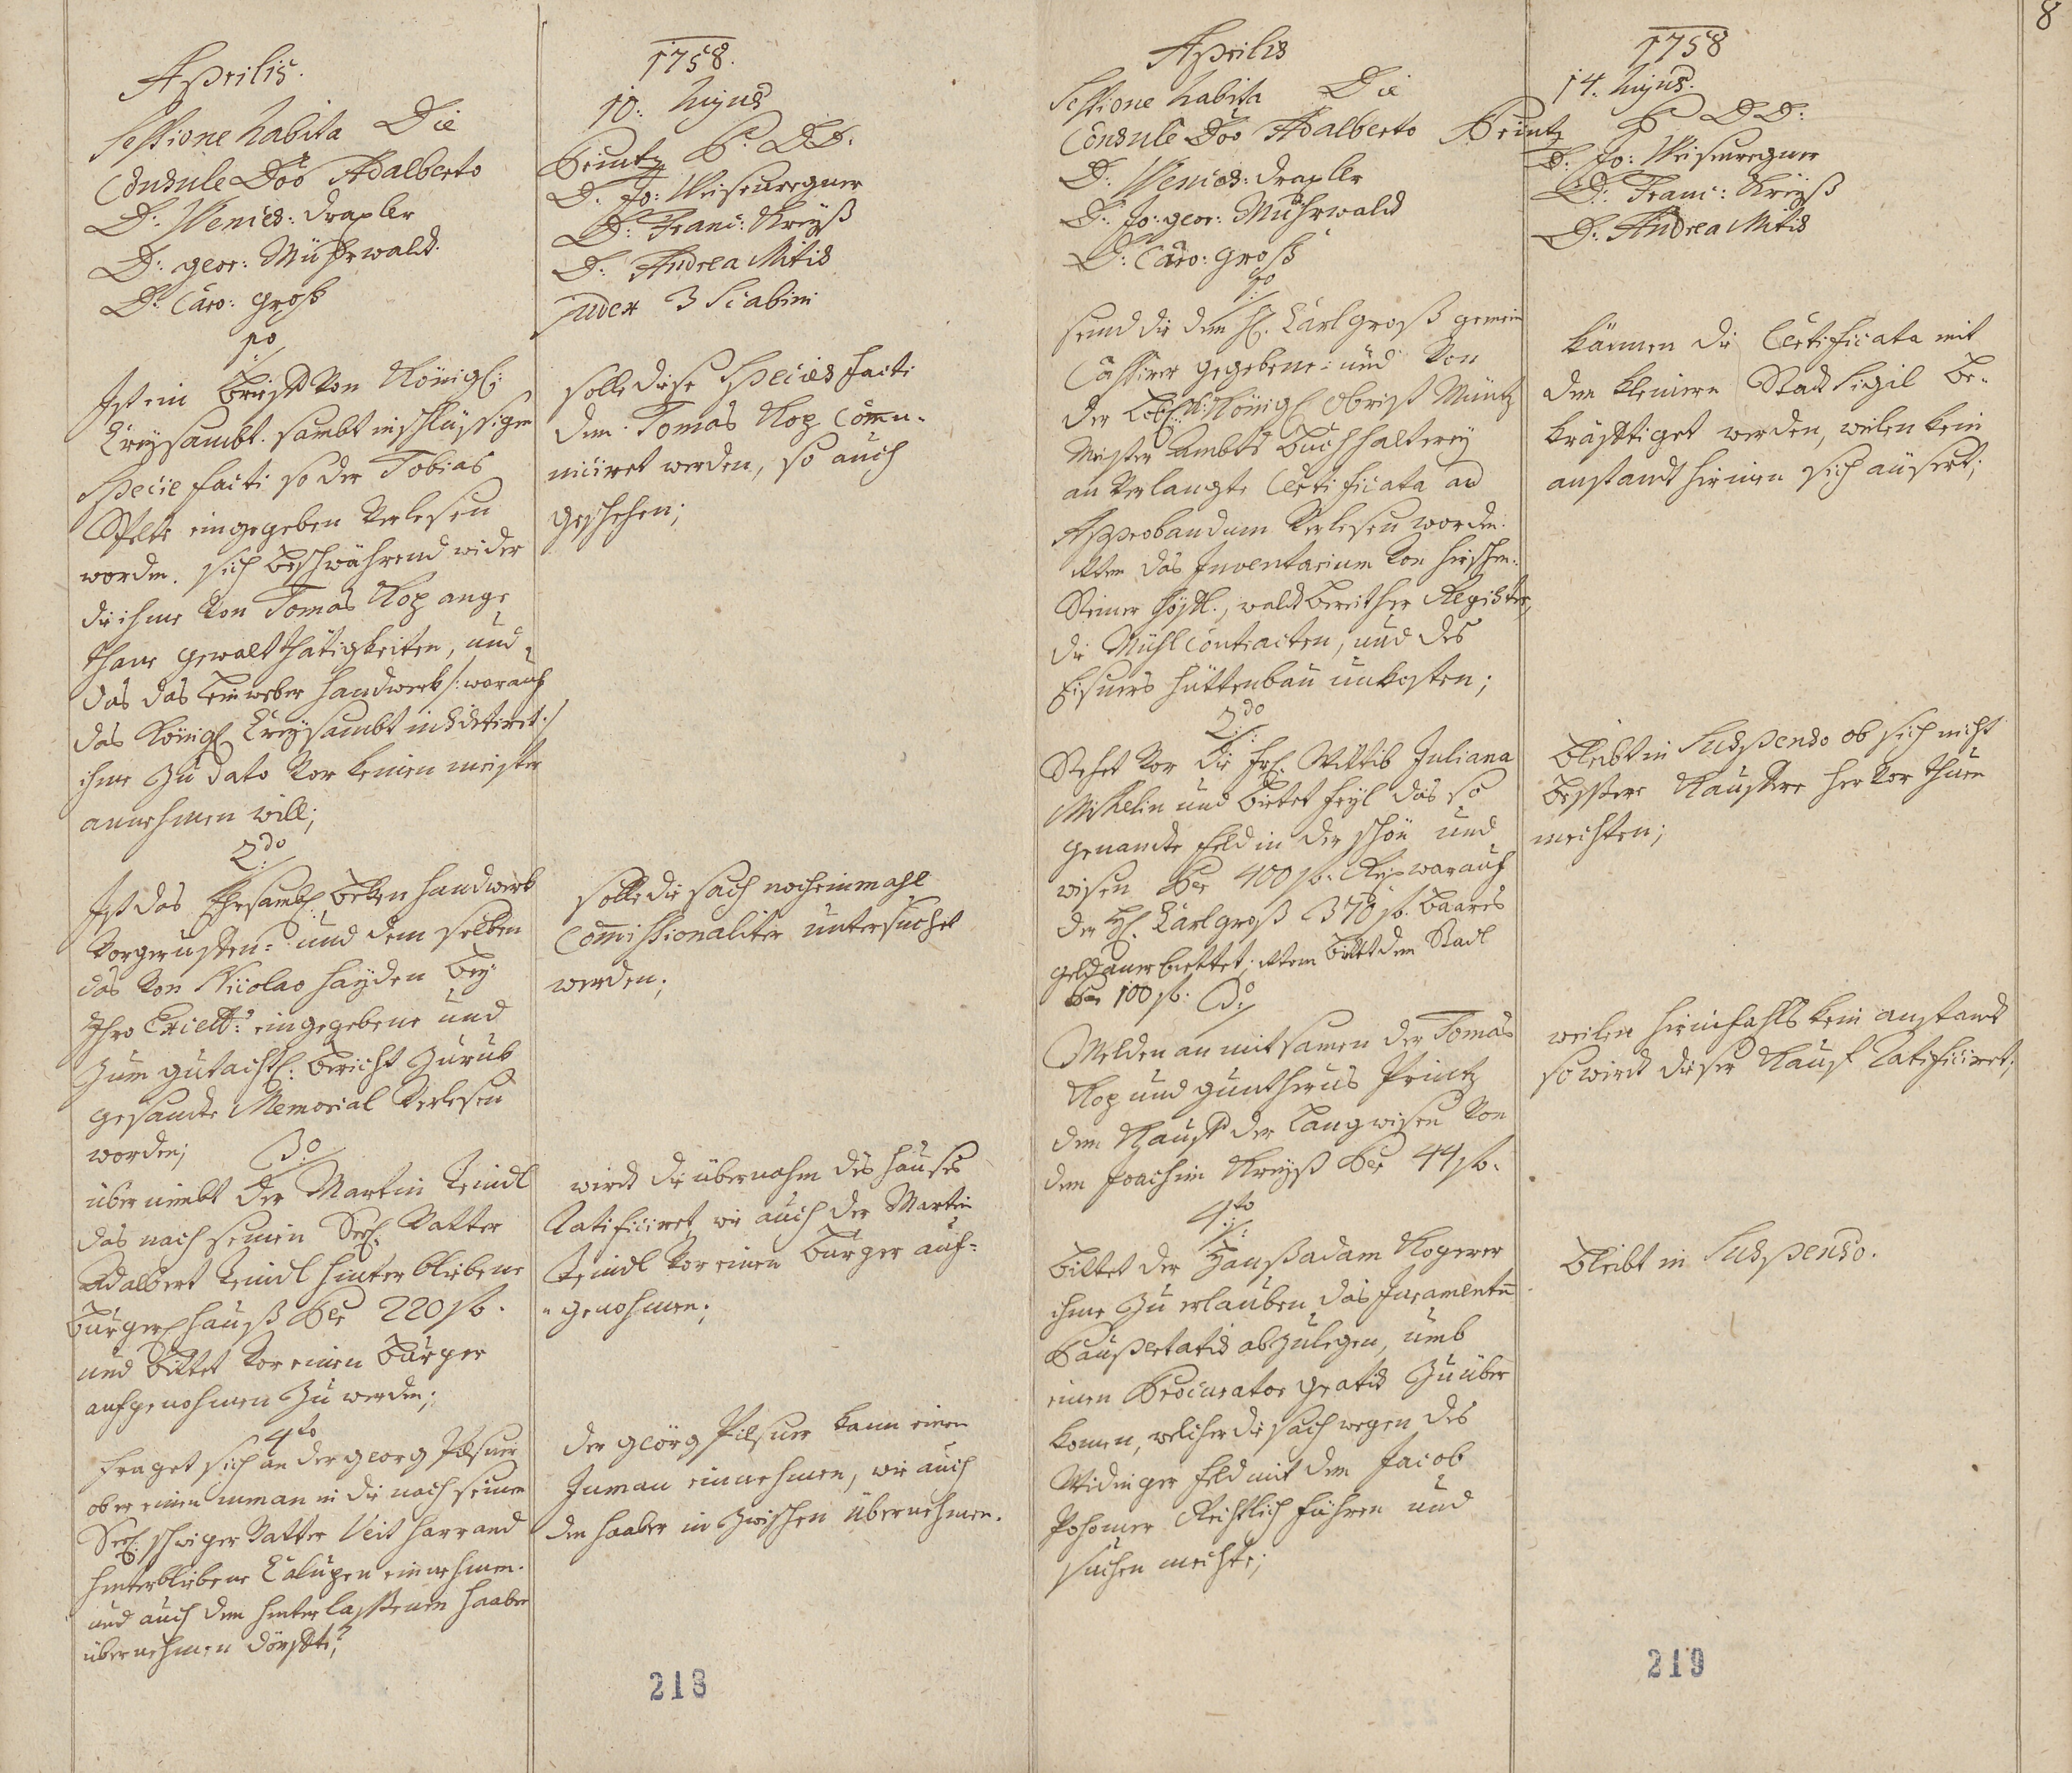 Aprilis.
Sessione habita Die
Consule Dõo Adalberto
D: Wences: Draxler
D: geor: Mührwald
D: Caro: Groß
1mo
Ist ein Brieff von Königl:
Creysambt sambt inschlüssigen
Specie facti so der Tobias
Stelk eingegeben verlesen
worden. sich beschwährend wider
die ihme von Tomas Kop ange
thane gewaltthätigkeiten, und
das das Leinweber handwerk /: worauf
das Königl. Creysambt insistiret :/
ihme zu dato vor keinen meister
annehmen will;
2do
Ist das Ehrsambl: Beken handwerk
vorgeruffen: und dem selben
das von Nicolao Hayden bey
Ihro Excell: eingegebene und
zum gutachtl: bericht zuruk
gesandte Memorial verlesen
worden;
3o
übernimbt der Martin Reindl
das nach seinen Seel. Vatter
Adalbert Reindl hinterbliebene
Bürgerl hauß per 220 fl.
und bittet vor einen Bürger
aufgenohmen zu werden;
4to
fraget sich an der georg Pilsner
ob er einen inman in die nach seinen
Seel. schwiger Vatter Veit Harrand
hinterbliebene Calupen einnehmen.
und auch den hinterlassenen haaber
übernehmen dörffte;
1758.
10: hujus
Printz P. DD.
D. Jo: Weisenregner
D: Franc: Kreyß
D: Andrea Mitis
Judex 3 Scabini
solle diese Species facti
dem Tomas Kop Comu-
niciret werden, so auch
geschehen;
solle die sach nocheinmahl
Commissionaliter untersuchet
werden;
wird die übernahm des hauses
Ratificiret, wie auch der Martin
Reindl vor einen Burger auf-
genohmen;
der georg Pilsner kann einen
Inman einnehmen, wie auch
den haaber in zwischen übernehmen.
218
Aprilis
Sessione habita Die
Consule Dõo Adalberto Printz
D: Wences: Draxler
D: Jo: geor: Mührwald
D: Caro: Groß
1mo
seind die dem H: Carl Groß gemein
Cassirer gegebene: und von
der Löbl: Königl Obrist Müntz
Meister Ambts Buchhalterey
an verlangte Certificata ad
Approbandum verlesen worden.
Item das Inventarium von Hirschen-
Steiner Höffl., waldbereither Register,
die Mühl Contracten, und des
Eisners Hüttenbau unkosten;
2do
Stehet vor die Frl. Wittib Juliana
Mikelin und bietet feyl das so
genandte feld in der schön und
wisen per 400 fl. Rhn. worauf
der H: Carl Groß 370 fl. baares
geld anerbiettet; Item bitt den Stadl
per 100 fl. 3o
Melden an mitsamen der Tomas
Kop und guntherus Printz
den Kauff der Langwisen von
dem Joachim Kreyß per 44 fl.
4to
bittet der Hanß Adam Kogerer
ihme zu erlauben das Juramentũ
Paupertatis abzulegen, umb
einen Procurator gratis zu über
komen, welcher die sach wegen des
Widinger feld mit dem Jacob
Pohomer Rechtlich führen und
suchen mechte;
1758
14. hujus.
P DD:
D: Jo: Weisenregner
D: Franc: Kreyß
D: Andrea Mitis
können die Certificata mit
den kleinern Stadt Sigil be-
kräfftiget werden, weilen kein
anstandt hirinen sich äusert;
bleibt in Suspenso ob sich nicht
bessere Kauffere hervor thuen
mechten;
weilen hirinfahls kein anstandt
so wird dieser Kauf Ratificiret;
bleibt in Suspenso.
219
8